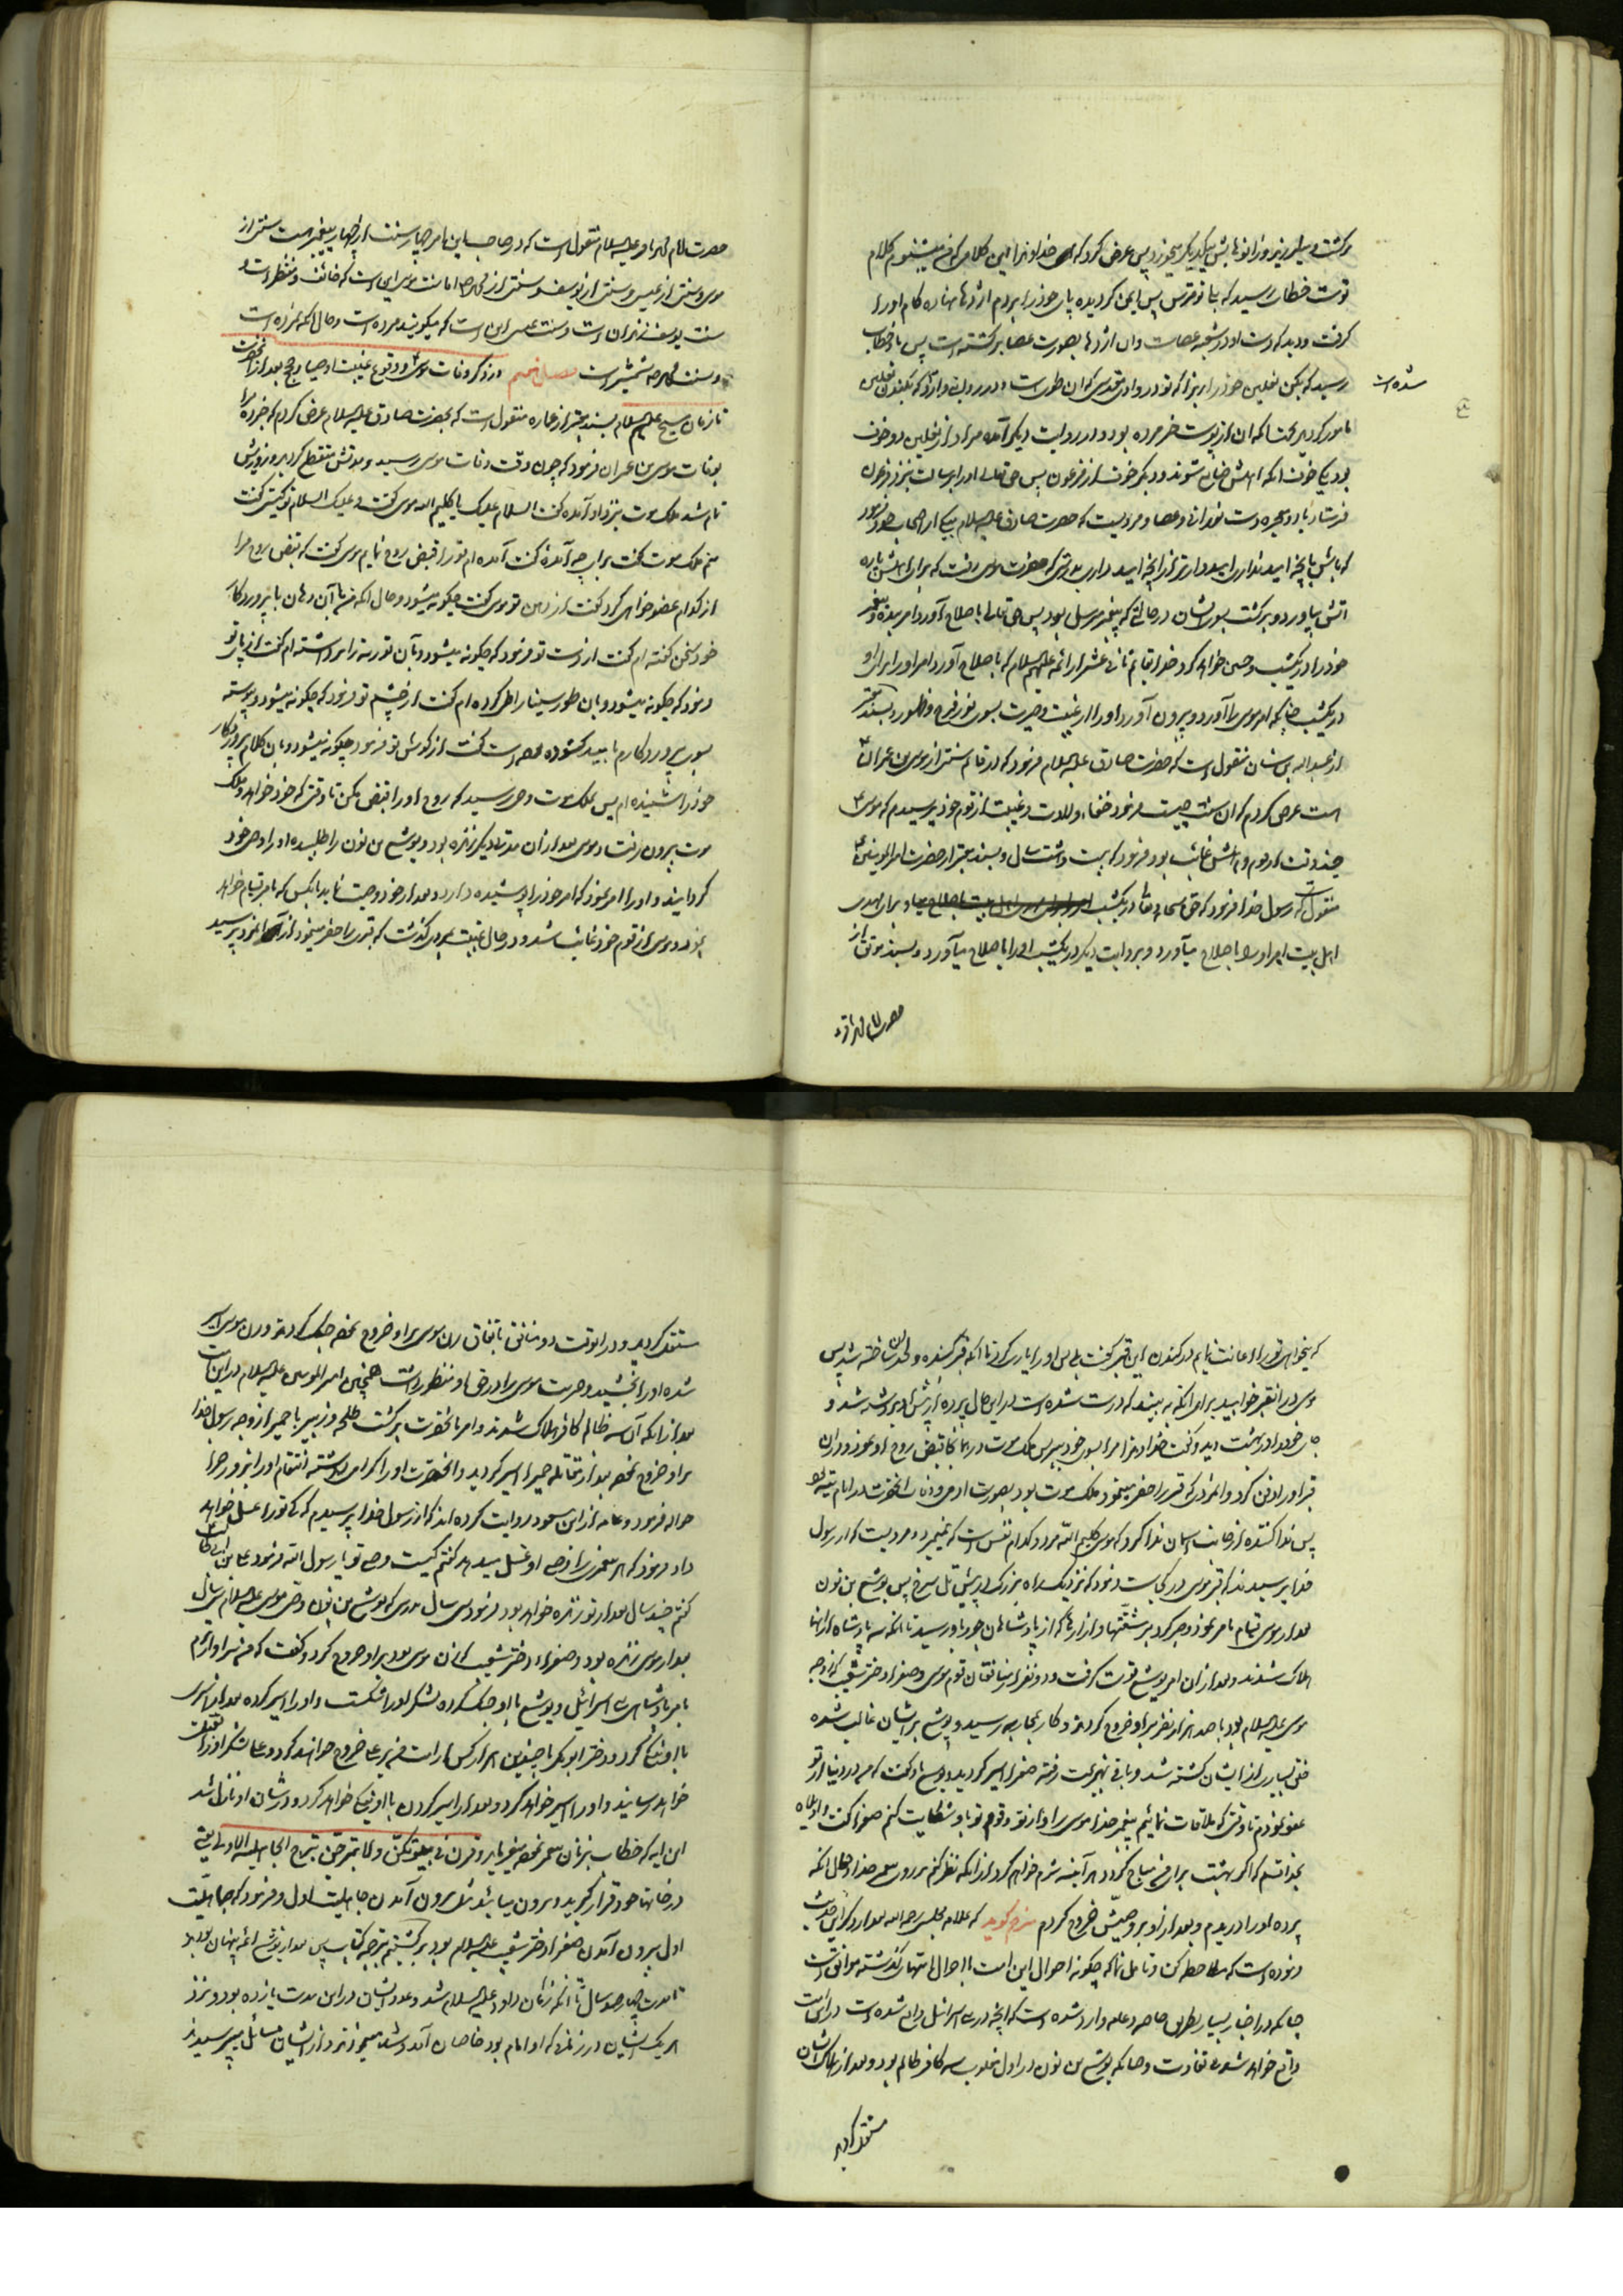 برکشت و میلرزید و زانوهایش بیکدیگر میخورد پس عرض کرد که خداوندا این کلام که من میشنوم کلام
تو است خطاب رسید که بلی تو مترس پس ایمن گردیده پای خود را بر دم اژدها نهاده کام او را
گرفت و دید که دست او در شعبه عصاست و ان اژدها بصورت عصا برکشته است پس باو خطاب
رسید که بکن نعلین خود را بدرستیکه تو در وادی مقدسی که ان طوی است و در روایت وارد که بکندن نعلین
شده است
مامور گردید بجهت انکه ان از پوست خر مرده بود و در روایت دیگر آمده مراد از نعلین دو خوف
بود یکی خوف انکه اهلش ضایع شوند و دیگر خوف از فرعون پس حق تعالی او را برسالت بنزد فرعون
فرستاد با دو معجزه دست نورانی و عصا و مرویست که حضرت صادق علیه السلام بیکی از اصحاب خود فرمود
که باش بانچه امید نداری امیدوارتر از انچه امید داری بدرستی که حضرت موسی رفت که برای اهلش پاره
اتش بیاورد و برکشت بسوی ایشان در حالتی که پیغمبر مرسل بود پس حق تعالی باصلاح آورد امر بنده و پیغمبر
خود را در یکشب و چنین خواهد کرد خدا بقائم ثانی عشر از ائمه علیهم السلام که باصلاح آورد امر او را برای او
در یکشب چنانچه امر موسی را آورد و بیرون آورد او را از غیبت و حیرت بسوی نور فرج و ظهور و بسند معتبر
از عبدالله بن سنان منقول است که حضرت صادق علیه السلام فرمود که در قائم سنتی از موسی بن عمران
است عرض کردم که ان سنت چیست فرمود خفاء ولادت و غیبت از قوم خود پرسیدم که موسی ع
چند وقت از قوم و اهلش غائب بود فرمود که بیست و هشت سال و بسند معتبر از حضرت امیرالمؤمنین ع
منقول است که رسول خدا فرمود که حق سبحانه و تعالی در یکشب برای مهدی
اهل بیت امر او را باصلاح میآورد و بروایت دیگر در یکشب او را باصلاح میآورد و بسند موثق از
حضرت امام باقر ع
حضرت امام محمد باقر علیه السلام منقول است که در صاحب این امر چهار سنت از چهار پیغمبر است سنتی از
موسی و سنتی از عیسی و سنتی از یوسف و سنتی از محمد ص اما سنت موسی این است که خائف و منتظر است و
سنت یوسف زندان است و سنت عیسی این است که میکویند مرده است و حال انکه نمرده است
و سنت محمد ص شمشیر است فصل پنجم در ذکر وفات موسی ع و وقوع غیبت اوصیا و حجج بعد از انحضرت
تا زمان مسیح علیهم السلام بسند معتبر از عماره منقول است که بحضرت صادق علیه السلام عرض کردم که خبر ده مرا
بوفات موسی بن عمران فرمود که چون وقت وفات موسی رسید و مدتش منقطع گردید و روزیش
تمام شد ملک موت بنزد او آمده گفت السلام علیک یا کلیم الله موسی گفت و علیک السلام تو کیستی گفت
منم ملک موت گفت برای چه آمده گفت آمده ام تو را قبض روح نمایم موسی گفت که قبض روح مرا
از کدام عضو خواهی کرد گفت از دهن تو موسی گفت چکونه میشود و حال انکه من با آن دهان با پروردگار
خود سخن گفته ام گفت از دست تو فرمود که چکونه میشود و بآن توریة را برداشته ام گفت از پای تو
فرمود که چکونه میشود و بان طور سینا را طی کرده ام گفت از چشم تو فرمود که چکونه میشود و پیوسته
بسوی پروردگارم بامید گشوده است گفت از گوش تو فرمود چکونه میشود و بان کلام پروردگار
خود را شنیده ام پس بملک موت وحی رسید که روح او را قبض مکن تا وقتی که خود خواهد و ملک
موت بیرون رفت و موسی بعد از ان مدتها دیگر زنده بود و یوشع بن نون را طلبیده او را وصی خود
گردانید و او را امر نمود که امر خود را پوشیده دارد و بعد از خود وصیت نماید بانکس که بامر قیام خواهد
نمود و موسی از قوم خود غائب شد و در حال غیبت بمردی گذشت که قبری را حفر مینمود از آن مرد پرسید
که میخواهی تو را اعانت نمایم در کندن این قبر گفت بلی پس او را یاری کرد تا انکه قبر کنده و لحد ان ساخته شد پس
موسی در ان قبر خوابید برای انکه به بیند که درست شده است در این حال پرده از پیش او برداشته شد و
جای خود را در بهشت دید و گفت خداوندا مرا بسوی خود ببر پس ملک موت در همانجا قبض روح او نمود و در ان
قبر او را دفن کرد و انمرد که قبر را حفر مینمود ملک موت بود بصورت ادمی و وفات انحضرت در ایام تیه بود
پس ندا کننده از جانب اسمان ندا کرد که موسی کلیم الله مرد و کدام نفس است که نمیمیرد و مرویست که از رسول
خدا پرسیدند که قبر موسی در کجاست فرمود که نزدیک راه بزرگ در پیش تل سرخ پس یوشع بن نون
بعد از موسی قیام بامر نمود و صبر کرد بر مشقتها و ازارها که از پادشاهان جور باو رسید تا انکه سه پادشاه از انها
هلاک شدند و بعد از ان امر یوشع قوت گرفت و دو نفر از منافقان قوم موسی و صفراء دختر شعیب که زوجه
موسی علیه السلام بود با صد هزار نفر بر او خروج کردند و کار بمحاربه رسید و یوشع بر ایشان غالب شده
خلق بسیاری از ایشان کشته شد و باقی بهزیمت رفته صفراء اسیر گردید و یوشع باو گفت که من در دنیا از تو
عفو نمودم تا وقتی که ملاقات نمائیم پیغمبر خدا موسی را و از تو و قوم تو باو شکایت کنم صفرا گفت واویلاه
بخدا قسم که اگر بهشت برای من مباح گردد هر آینه شرم خواهم کرد از انکه نظر کنم بر روی پیغمبر خدا و حال انکه
پرده او را دریدم و بعد از او بر وصیش خروج کردم مترجم گوید که علامه مجلسی رحمه الله بعد از ذکر این حدیث
فرموده است که ملاحظه کن و تامل نما که چگونه احوال این امت با احوال امتهای گذشته موافق است
چنانکه در اخبار بسیار بطریق خاصه و عامه وارد شده است که انچه در بنی اسرائیل واقع شده است در این امت
واقع خواهد شد بی تفاوت و چنانکه یوشع بن نون در اول مغلوب سه کافر ظالم بود و بعد از هلاک ایشان
مستقل گردید
مستقل گردید و در انوقت دو منافق باتفاق زن موسی بر او خروج نموده جنک کردند و زن موسی اسیر
شده او را بخشید و حرمت موسی را در حق او منظور داشت همچنین امیرالمومنین علیه السلام در این امت
بعد از انکه آن سه ظالم کافر هلاک شدند و امر بانحضرت برگشت طلحه و زبیر با حمیرا زوجه رسول خدا
بر او خروج نموده بعد از مقاتله حمیرا اسیر گردید و انحضرت او را گرامی داشته انتقام او را بروز جزا
حواله فرمود و عامه از ابن مسعود روایت کرده اند که از رسول خدا پرسیدم که کی تو را غسل خواهد
داد فرمود که هر پیغمبری را وصی او غسل میدهد گفتم کیست وصی تو یا رسول الله فرمود علی بن ابی طالب
گفتم چند سال بعد از تو زنده خواهد بود فرمود سی سال بدرستی که یوشع بن نون وصی موسی علیه السلام سی سال
بعد از موسی زنده بود و صفراء دختر شعیب که زن موسی بود بر او خروج کرد و گفت که من سزاوارترم
بامر پادشاهی بنی اسرائیل و یوشع با او جنک کرده لشکر او را شکست و او را اسیر کرده بعد از اسیری
با او نیکی کرد و دختر ابوبکر با چندین هزار کس از امت من بر علی خروج خواهد کرد و علی لشکر او را بقتل
خواهد رسانید و او را اسیر خواهد کرد و بعد از اسیر کردن با او نیکی خواهد کرد و در شان او نازل شد
این ایه که خطاب بزنان پیغمبر نموده میفرماید و قرن فی بیوتکن و لا تبرجن تبرج الجاهلیة الاولی یعنی
در خانهای خود قرار گیرید و بیرون میائید مثل بیرون آمدن جاهلیت اول و فرمود که جاهلیت
اول بیرون آمدن صفراء دختر شعیب علیه السلام بود برگشتیم بترجمه کتاب پس بعد از یوشع ائمه پنهان بودند
تا مدت چهارصد سال تا انکه زمان داود علیه السلام شد و عدد ایشان در این مدت یازده بود و نزد
هر یک از ایشان در زمانی که او امام بود خاصان آمد و شد مینمودند و از ایشان مسائل میپرسیدند